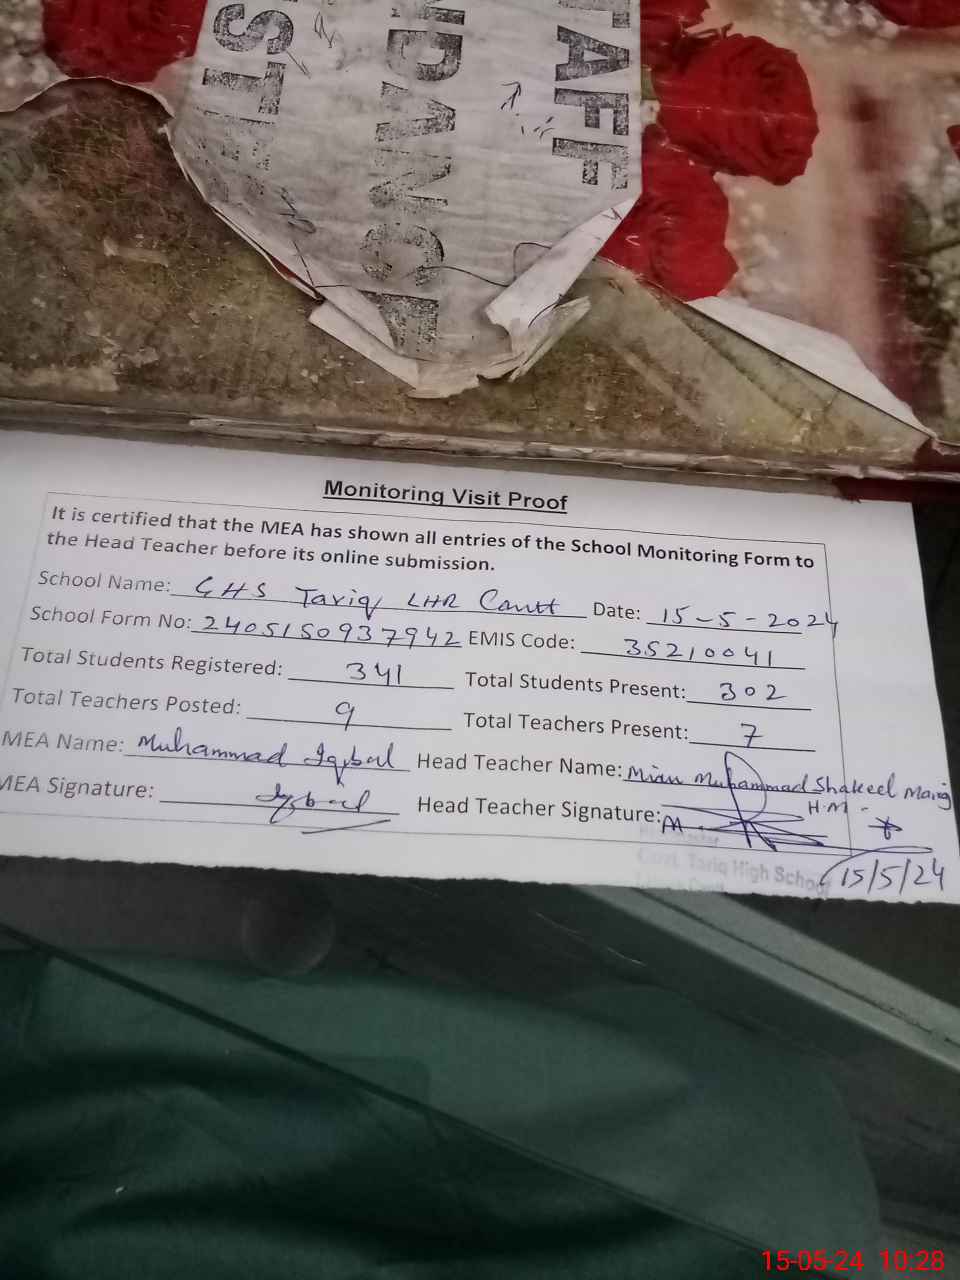 STAFF
NDANCE
ST
Monitoring Visit Proof
It is certified that the MEA has shown all entries of the School Monitoring Form to
the Head Teacher before its online submission.
School Name: GHS Tariq LHR Cantt Date: 15-5-2024
School Form No: 2405150937942 EMIS Code: 35210041
Total Students Registered: 341 Total Students Present: 302
Total Teachers Posted: 9 Total Teachers Present: 7
MEA Name: Muhammad Iqbal Head Teacher Name: Mian Muhammad Shakeel
H.M
MEA Signature: Iqbal Head Teacher Signature:
Govt. Tariq High School
15/5/24
15-05-24 10:28